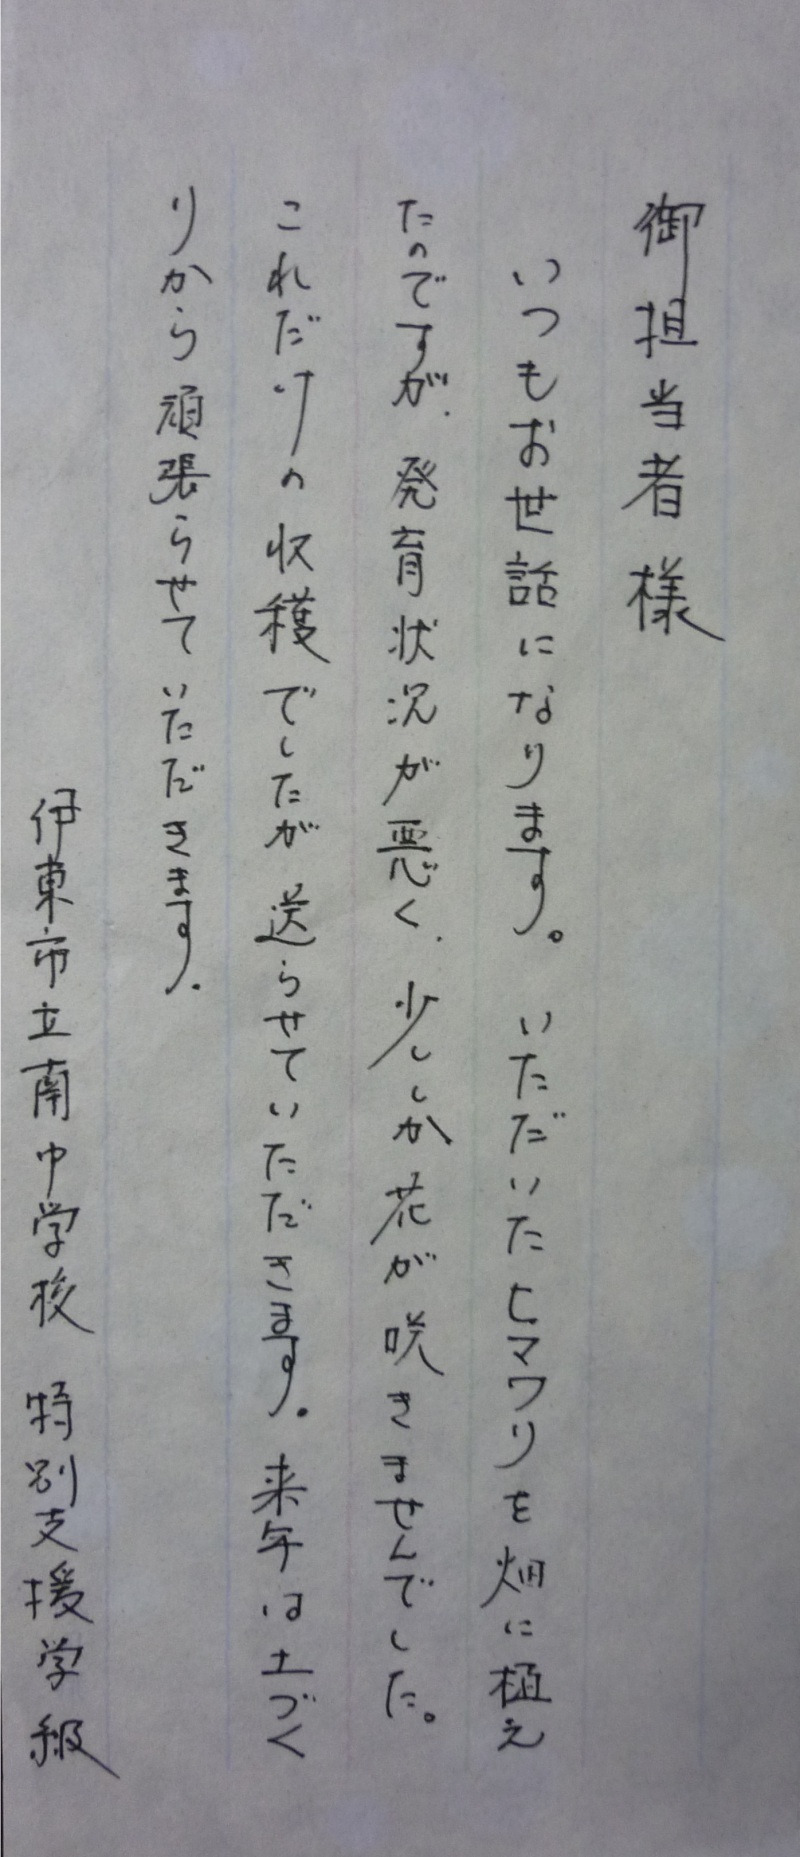 御担当者様
いつもお世話になります。いただいたヒマワリを畑に植え
たのですが、発育状況が悪く、少ししか花が咲きませんでした。
これだけの収穫でしたが送らせていただきます。来年は土づく
りから頑張らせていただきます。
伊東市立南中学校 特別支援学級